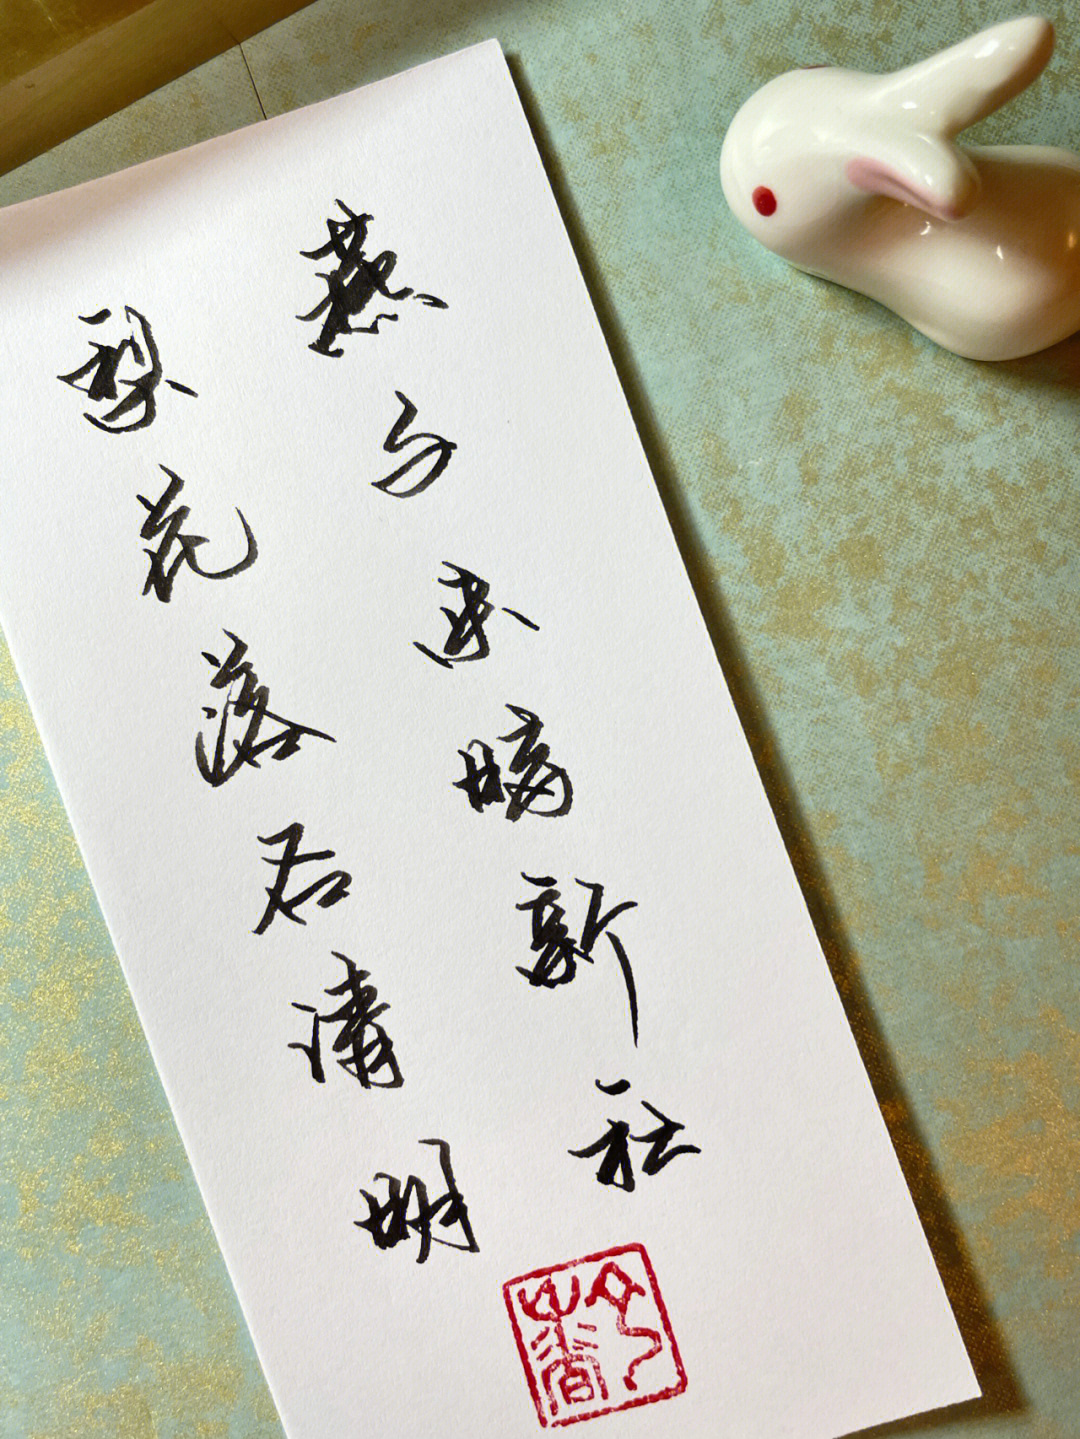 燕子来時新社
梨花落后清明